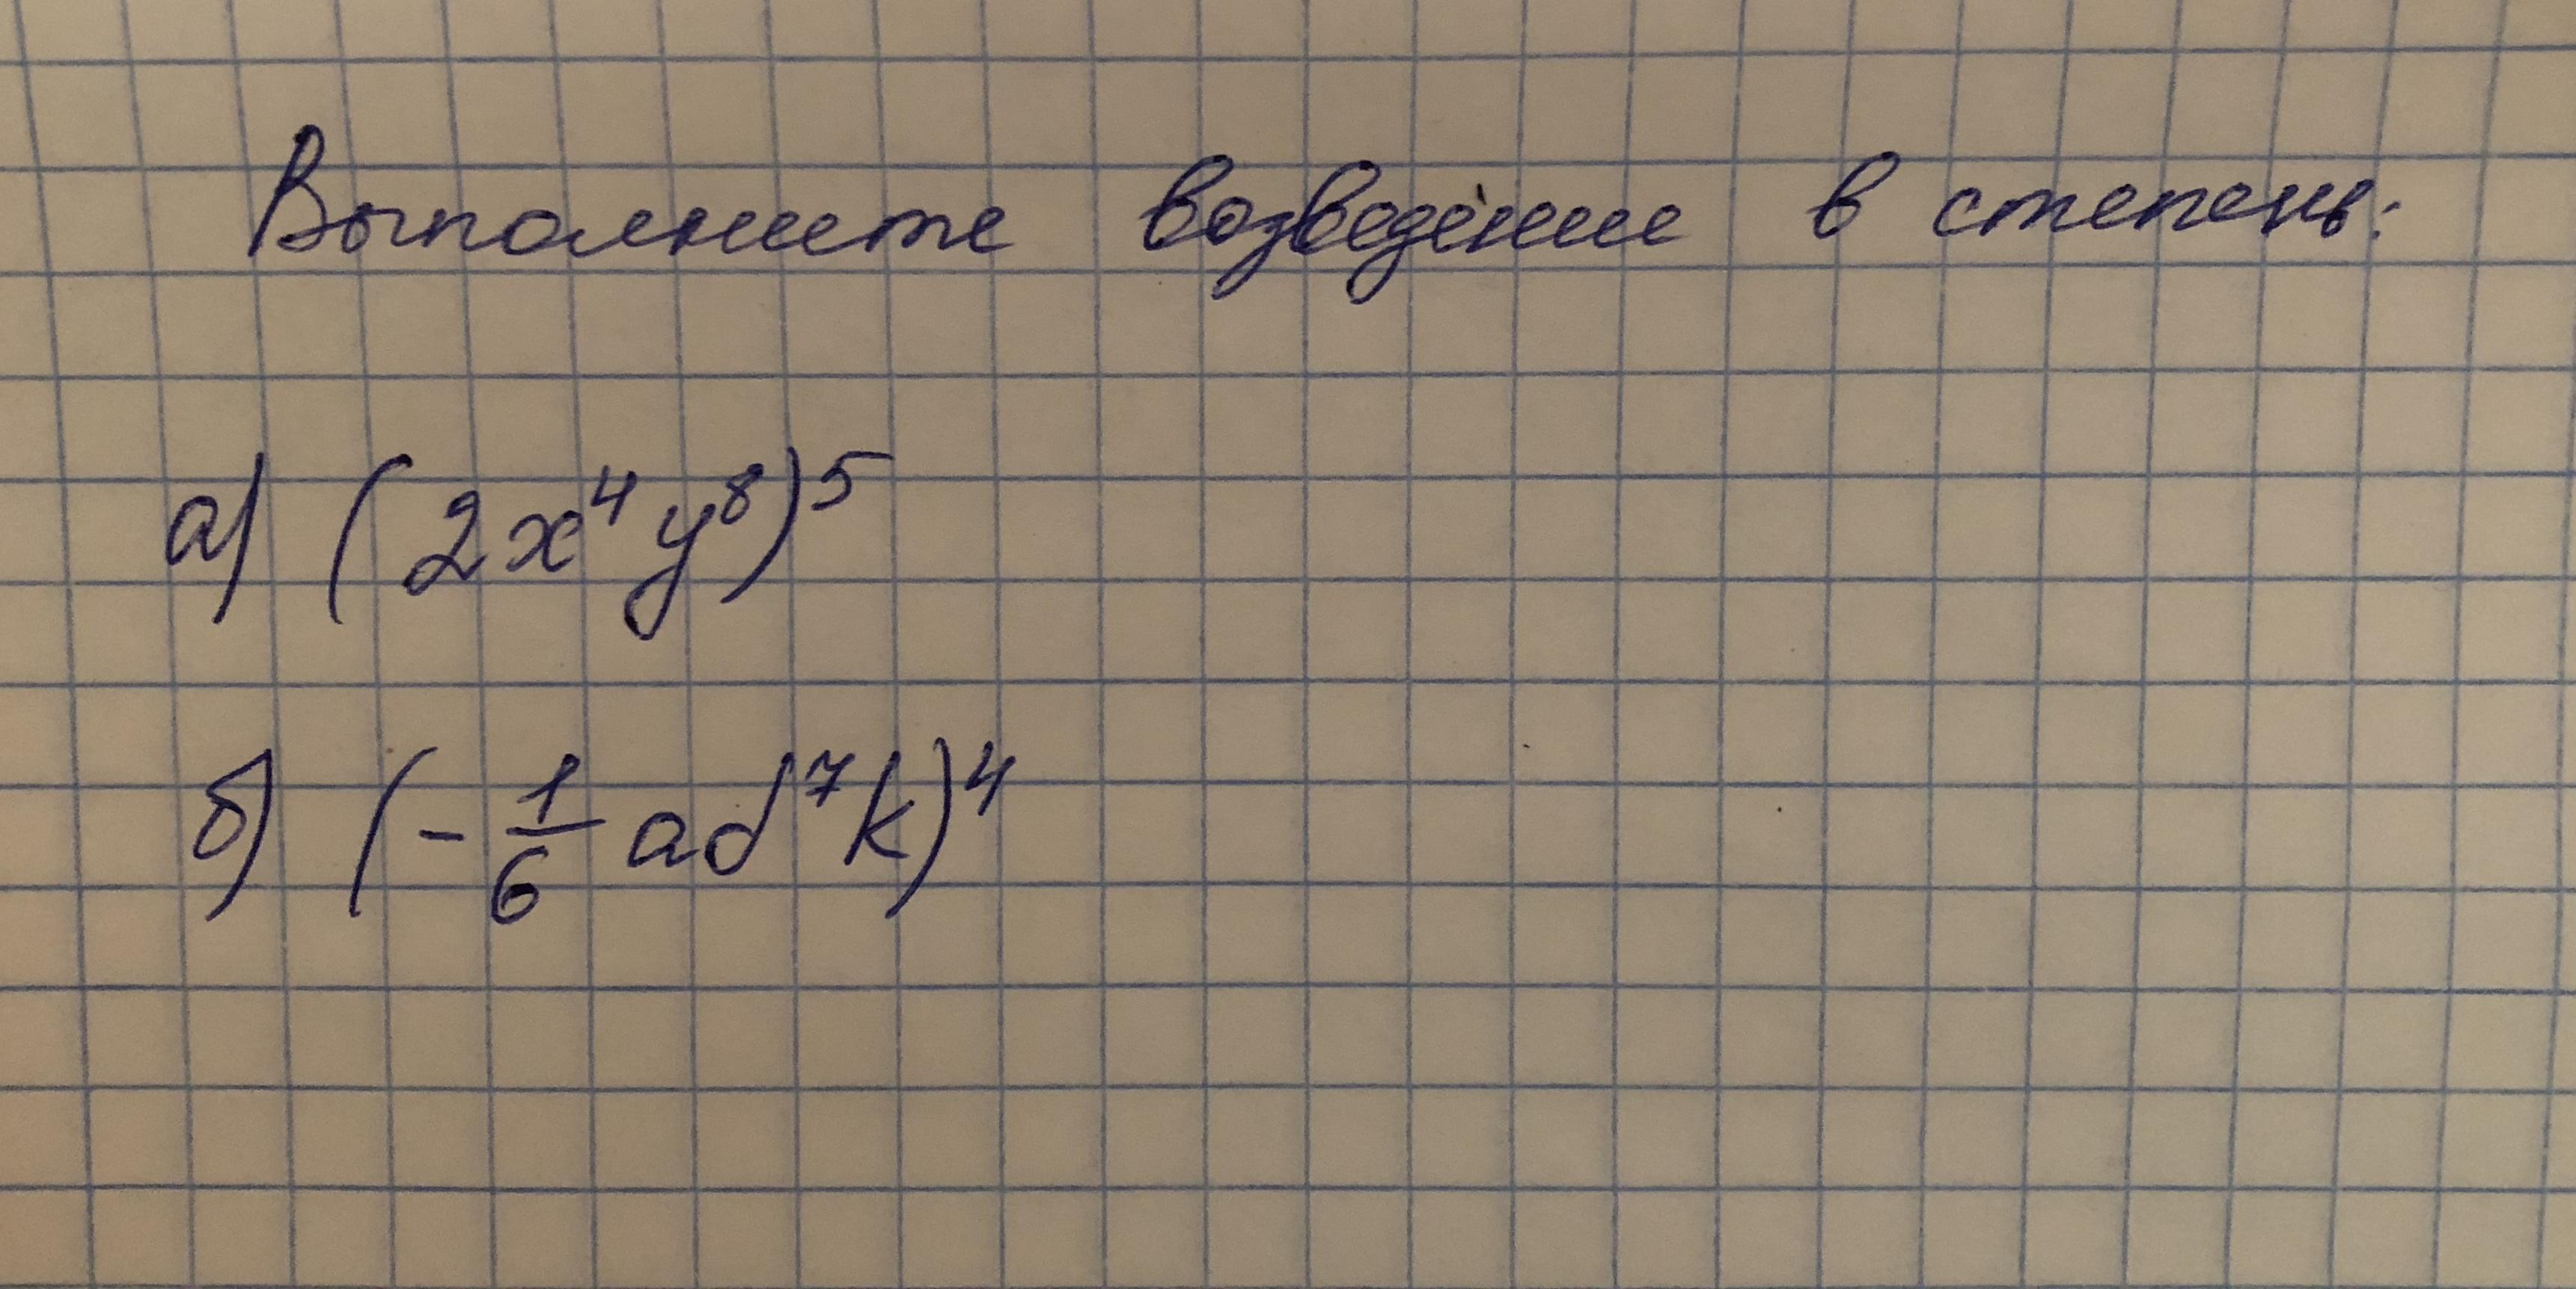 Выполните возведение в степень:
а) (2x⁴y⁸)⁵
б) (-1/6 ad⁷k)⁴